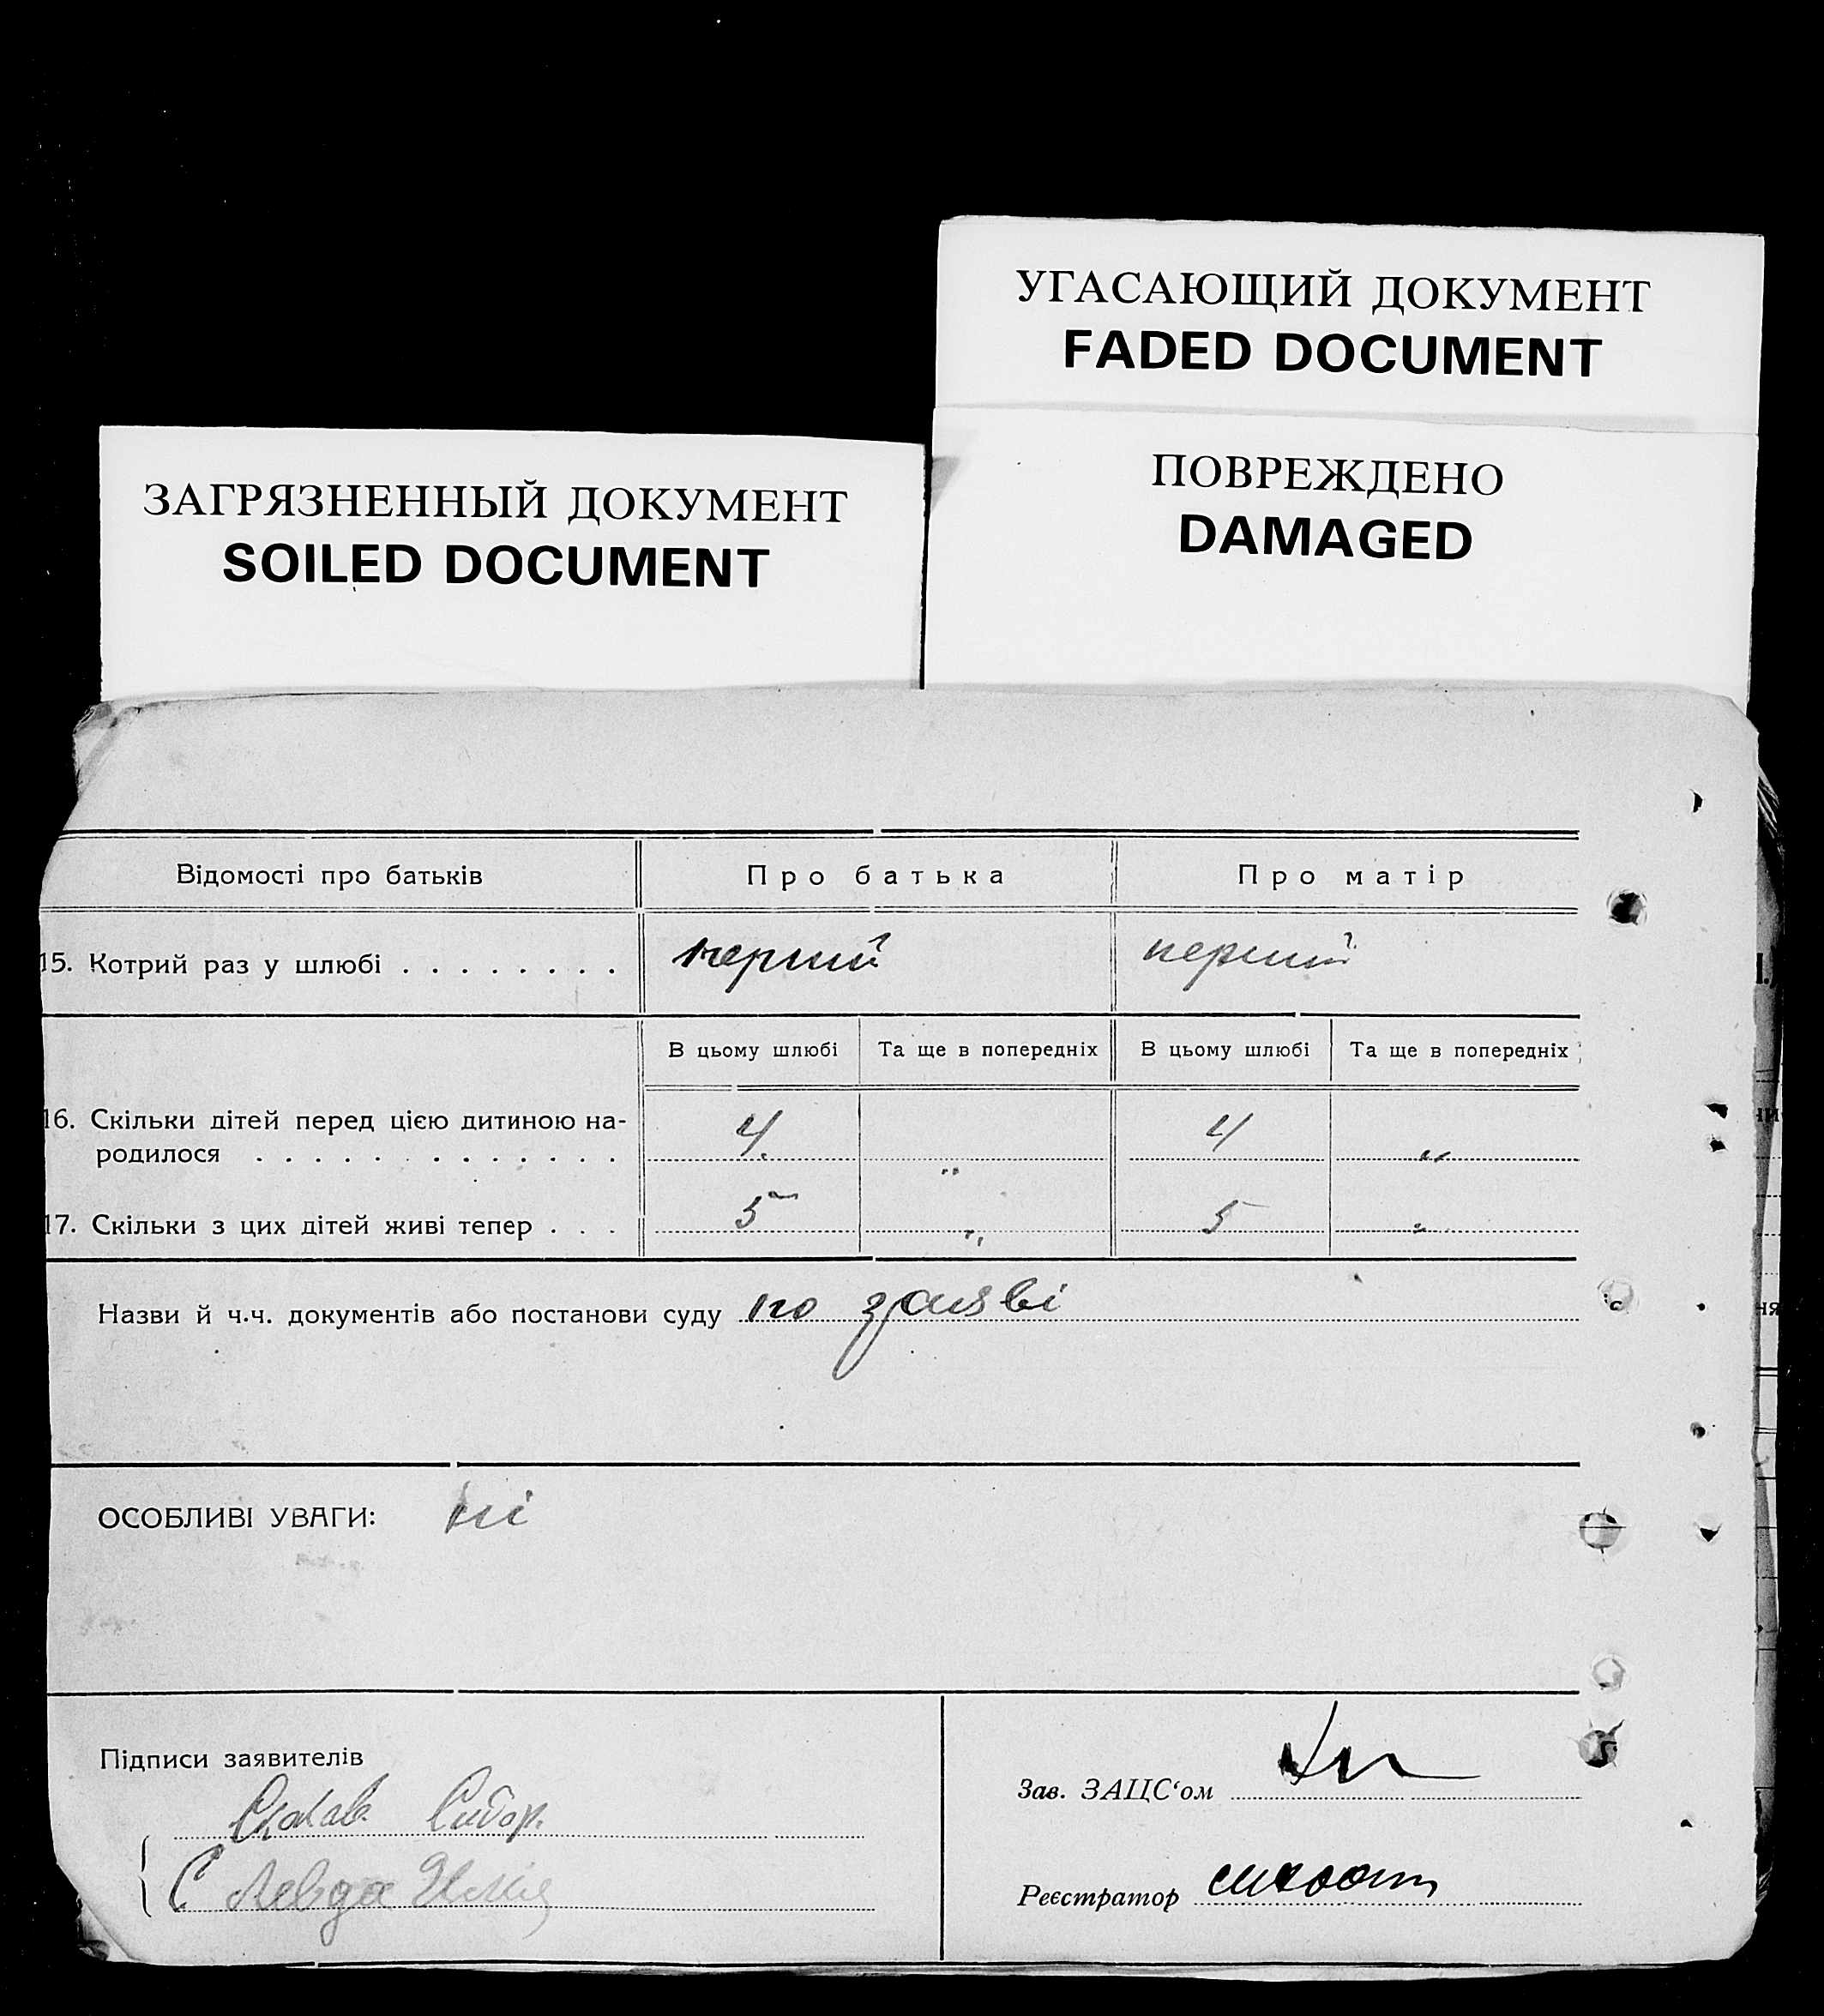 УГАСАЮЩИЙ ДОКУМЕНТ
FADED DOCUMENT
ПОВРЕЖДЕНО
DAMAGED
ЗАГРЯЗНЕННЫЙ ДОКУМЕНТ
SOILED DOCUMENT
Відомості про батьків Про батька Про матір
15. Котрий раз у шлюбі . . . . . . . . перший перший
В цьому шлюбі Та ще в попередніх В цьому шлюбі Та ще в попередніх
16. Скільки дітей перед цією дитиною на-
родилося . . . . . . . . . . . . . 4. „ 4 „
17. Скільки з цих дітей живі тепер . . . 5 „ 5 „
Назви й ч.ч. документів або постанови суду по заяві
ОСОБЛИВІ УВАГИ: ні
Підписи заявителів
Сидор.
С Левда
Зав. ЗАЦС‘ом
Реєстратор